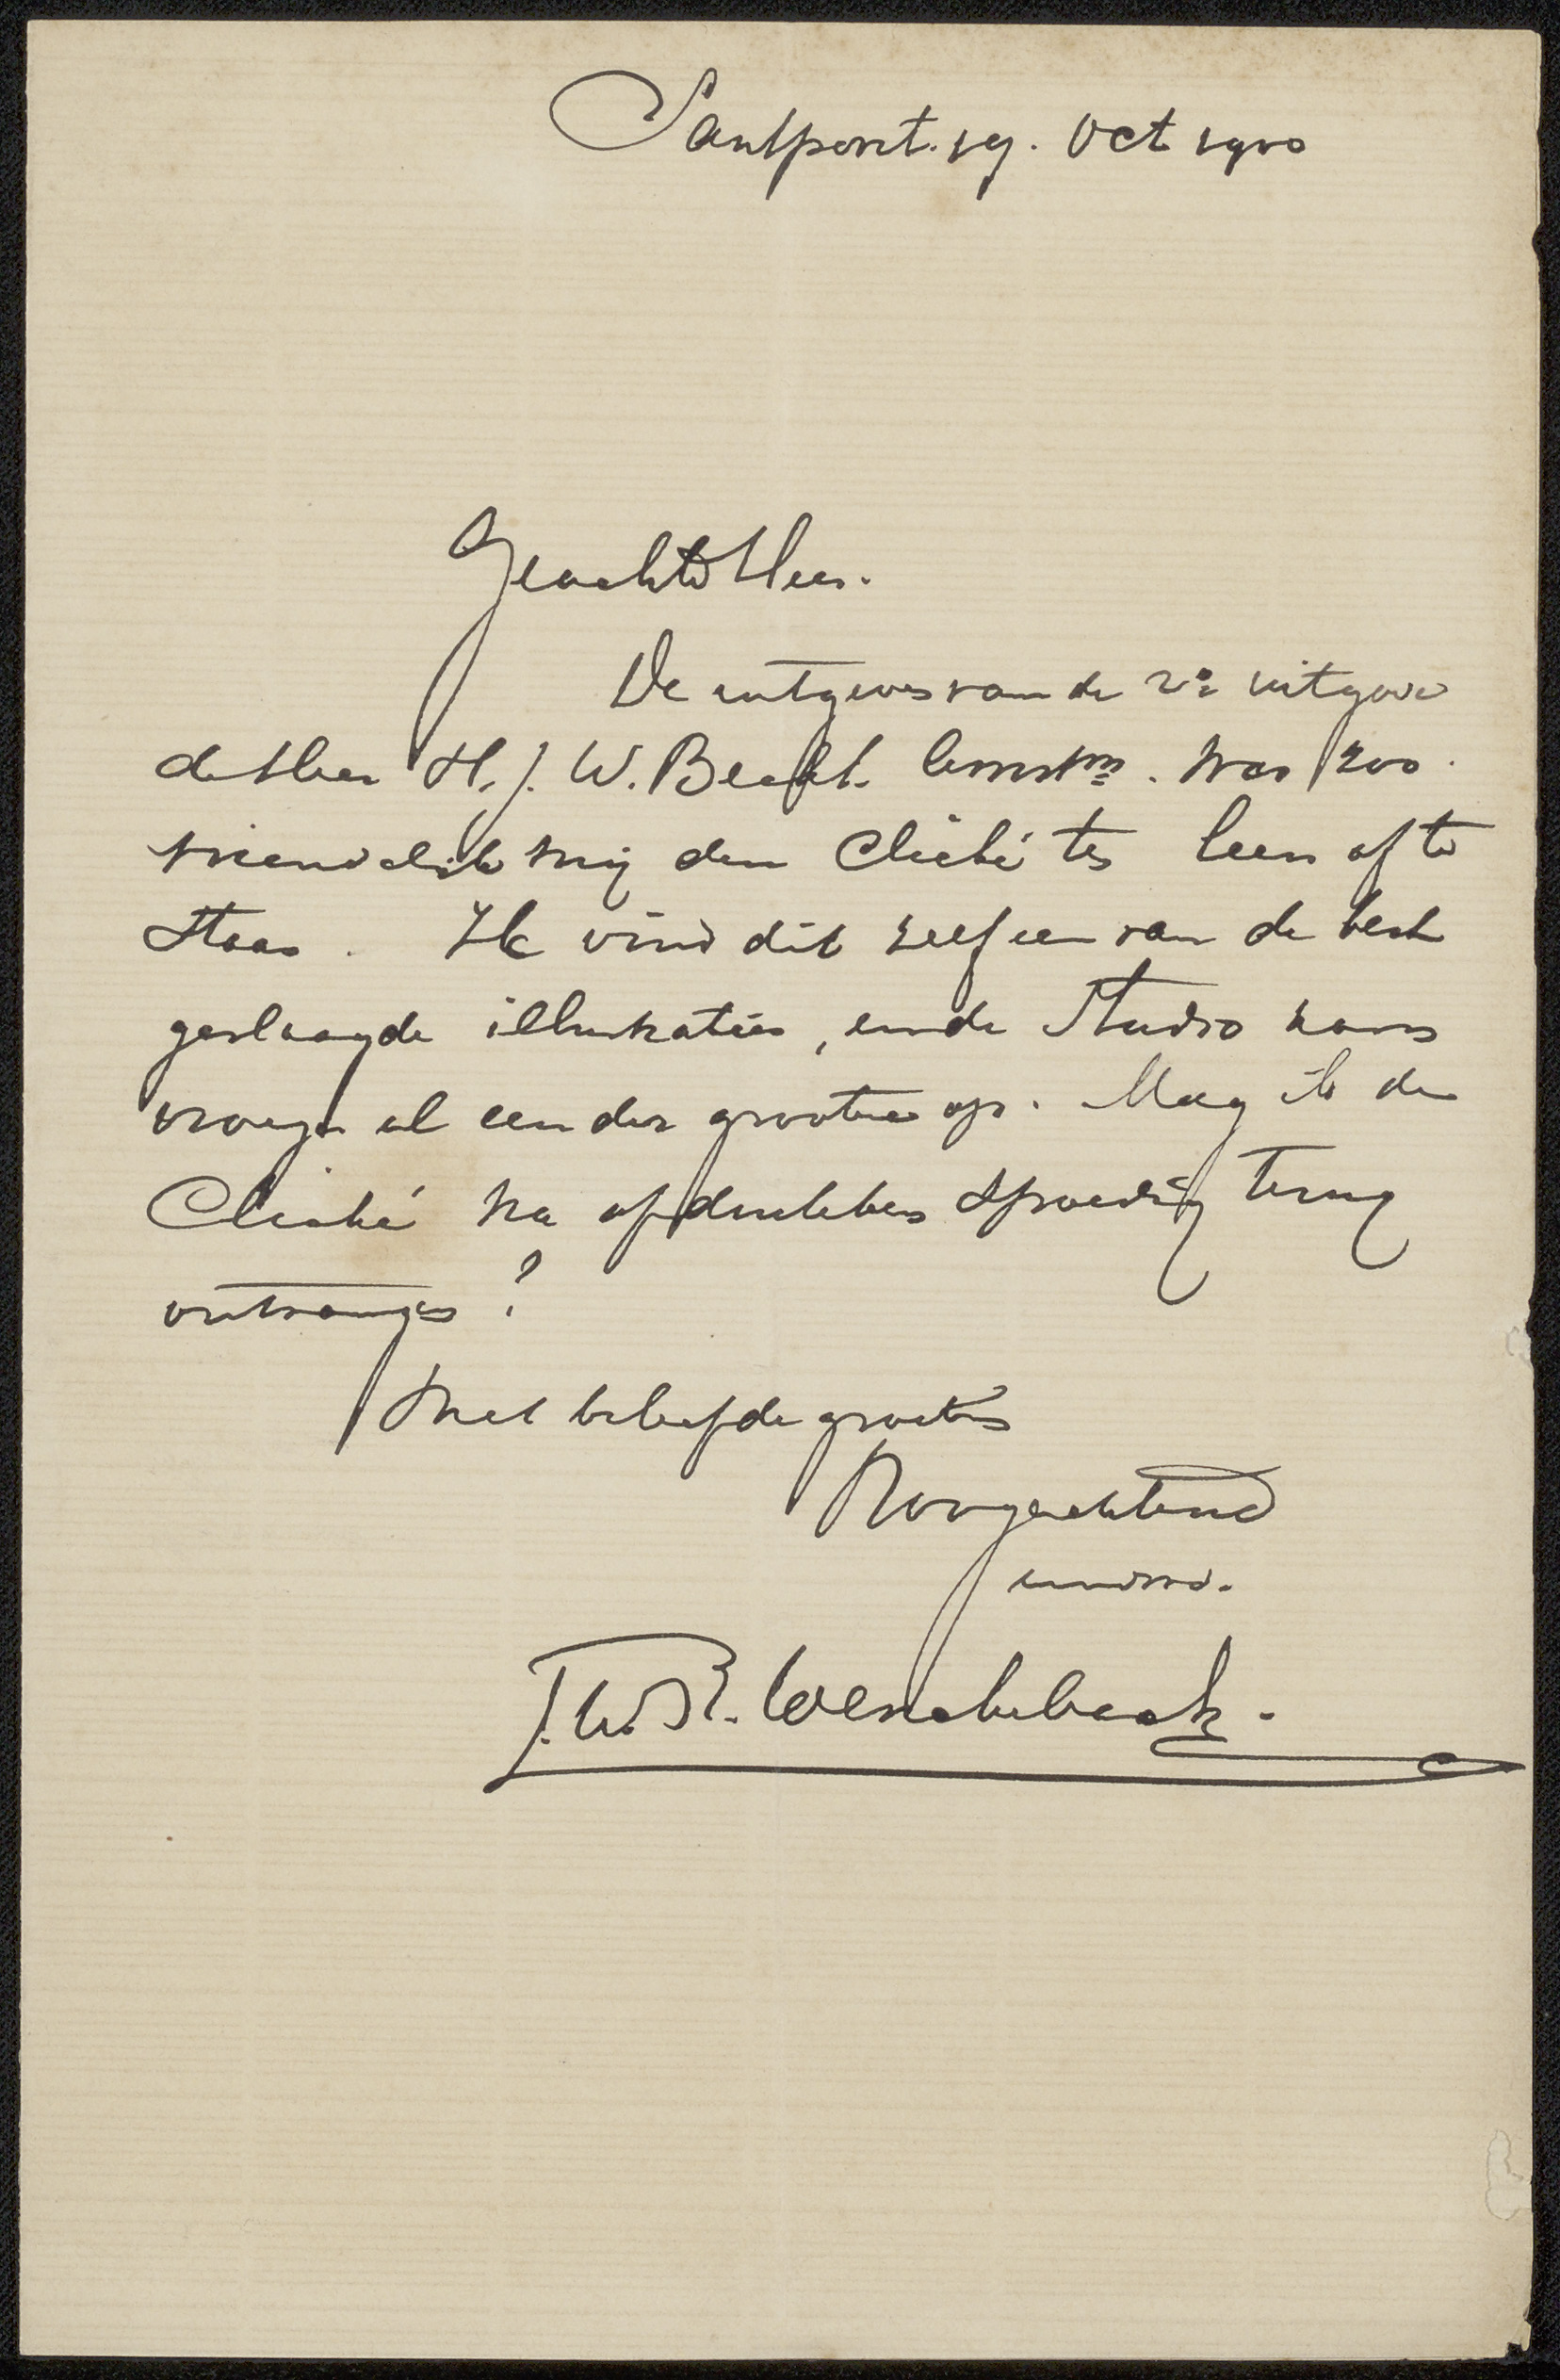 Santpoort. 19. Oct 1900
Geachte Heer.
De uitgever van de 2e uitgave
de Heer H. J. W. Becht. Amstm. was zoo
vriendelijk mij den Cliché ter leen af te
staan. Ik vind dit zelf een van de best
geslaagde illustraties, en de Studio nam
vroeger al een der grootere op. Mag ik den
Cliché na afdrukken spoedig terug
ontvangen?
Met beleefde groeten
Hoogachtend
F. W. B. Wenckebach.